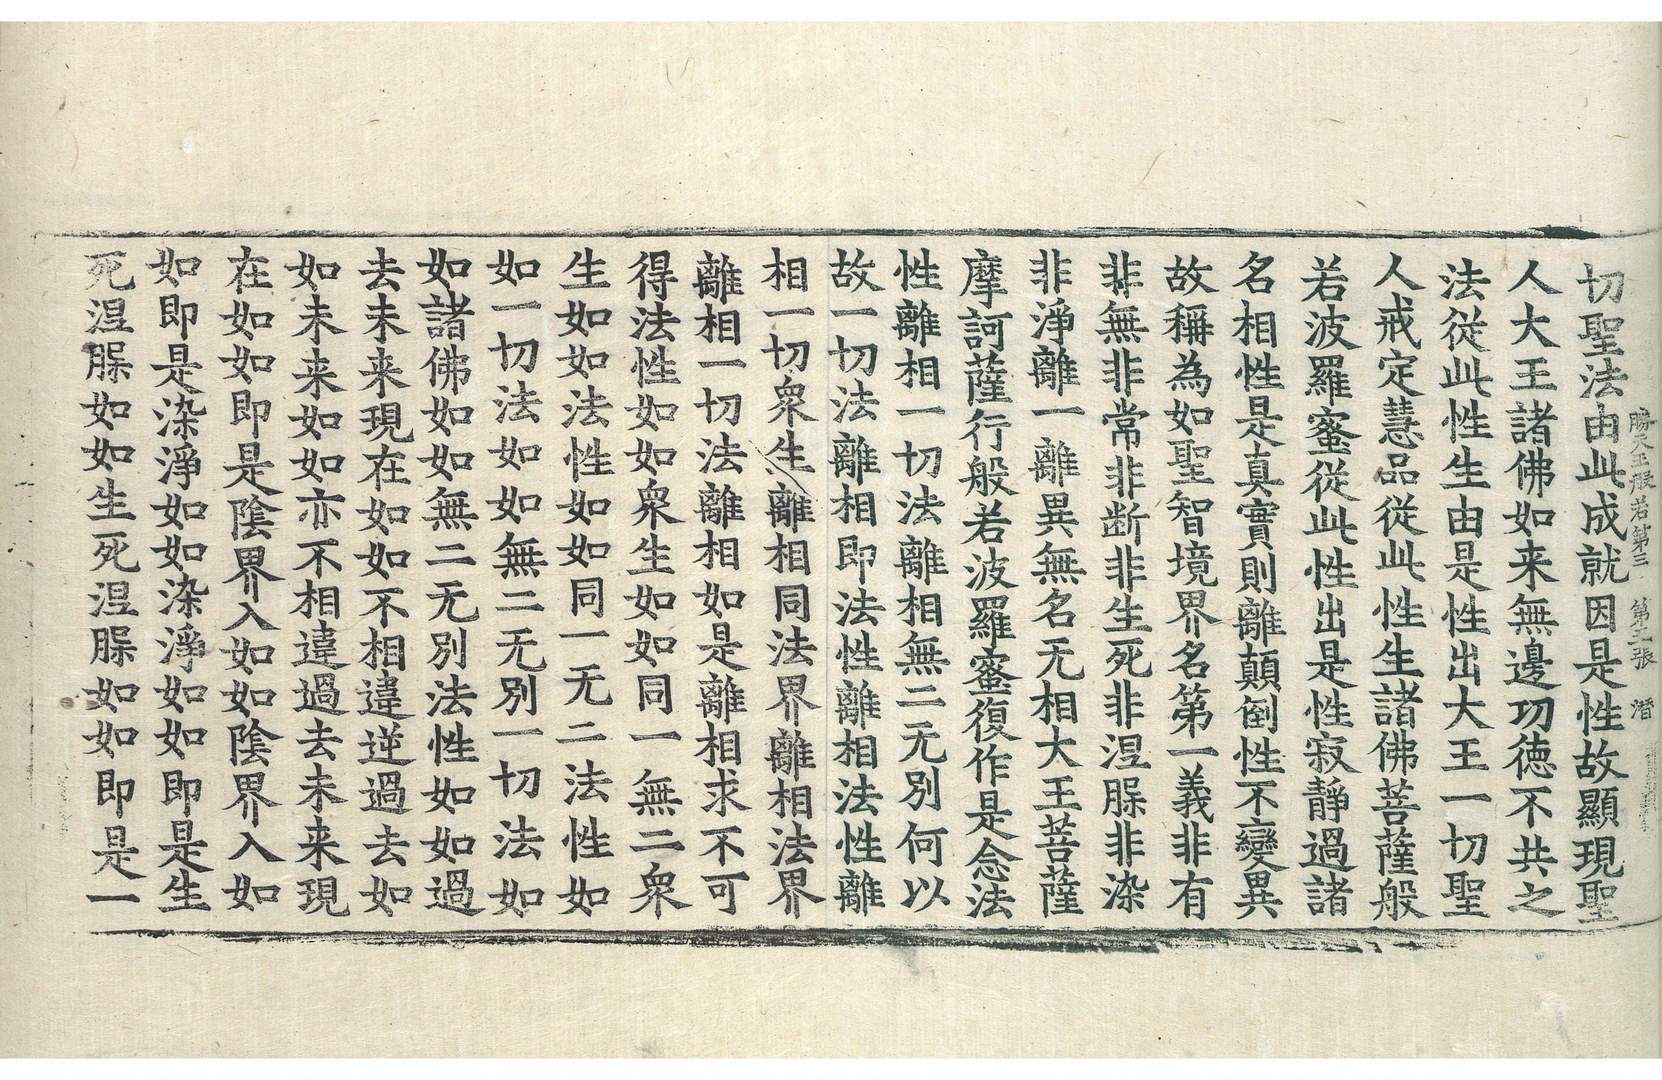 勝天王般若第三　第五張　潛
切聖法由此成就因是性故顯現聖
人大王諸佛如来無邊功徳不共之
法從此性生由是性出大王一切聖
人戒定慧品從此性生諸佛菩薩般
若波羅蜜從此性出是性寂靜過諸
名相性是真實則離顛倒性不變異
故稱為如聖智境界名第一義非有
非無非常非断非生死非涅槃非染
非淨離一離異無名无相大王菩薩
摩訶薩行般若波羅蜜復作是念法
性離相一切法離相無二无別何以
故一切法離相即法性離相法性離
相一切衆生離相同法界離相法界
離相一切法離相如是離相求不可
得法性如如衆生如如同一無二衆
生如如法性如如同一无二法性如
如一切法如如無二无別一切法如
如諸佛如如無二无別法性如如過
去未来現在如如不相違逆過去如
如未来如如亦不相違過去未来現
在如如即是陰界入如如陰界入如
如即是染淨如如染淨如如即是生
死涅槃如如生死涅槃如如即是一